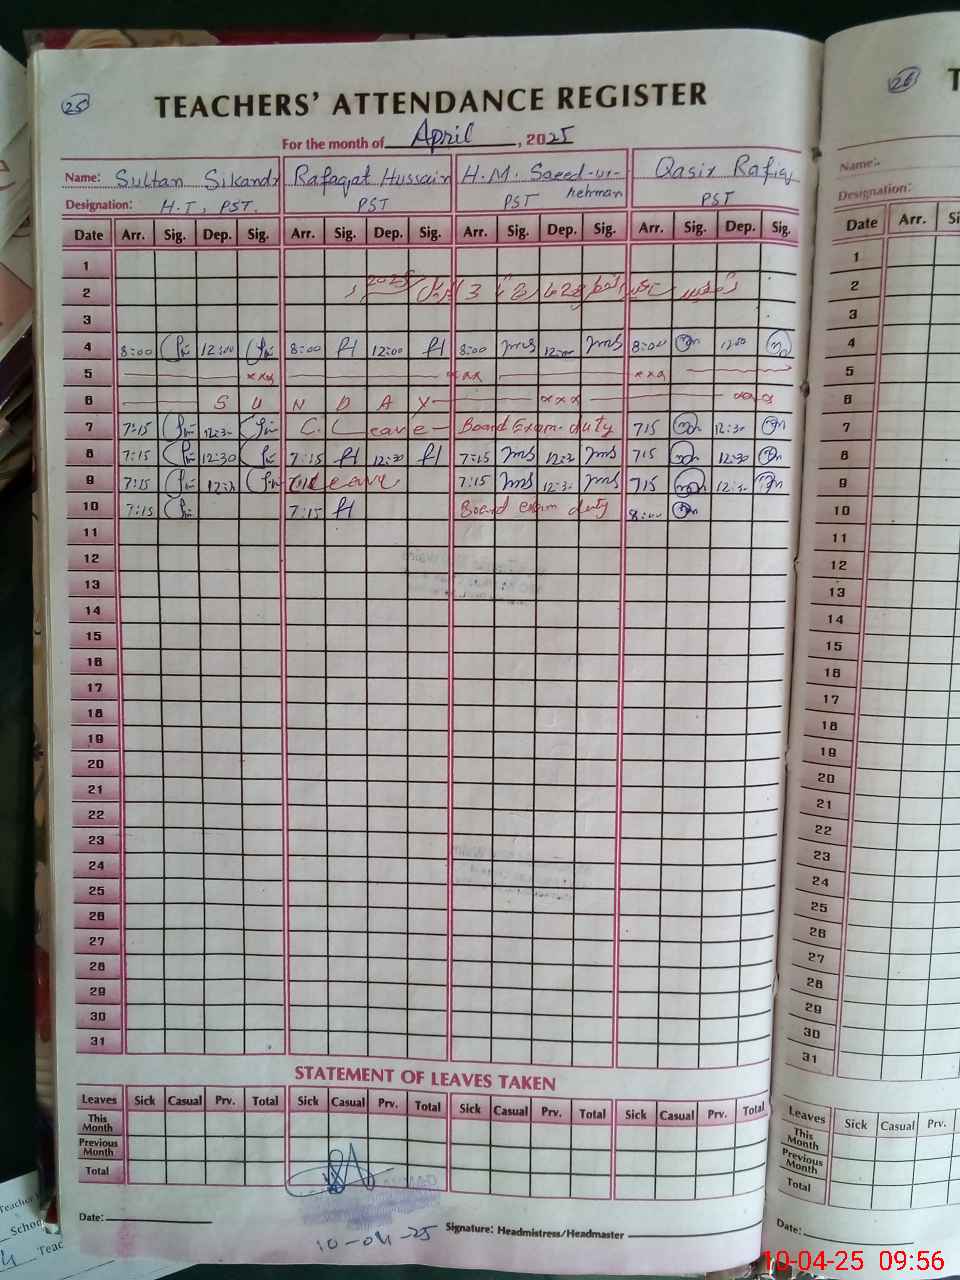 25
TEACHERS' ATTENDANCE REGISTER
For the month of April, 2025
Name: Sultan Sikandr Rafaqat Hussain H.M. Saeed-ur-rehman Qasir Rafiq
Designation: H.T, PST. PST PST PST
Date Arr. Sig. Dep. Sig. Arr. Sig. Dep. Sig. Arr. Sig. Dep. Sig. Arr. Sig. Dep. Sig.
1
2 2025 3
3
4 8:00 12:00 8:00 12:00 8:00 12:00 8:00 12:00
5 xxx xxx xxx
6 S U N D A Y xxx xxx
7 7:15 12:30 C. Leave Board Exam duty 715 12:30
8 7:15 12:30 7:15 12:30 7:15 715 12:30
9 7:15 Leave 7:15 12:30 715
10 7:15 7:15 Board exam duty 8:00
11
12
13
14
15
16
17
18
19
20
21
22
23
24
25
26
27
28
29
30
31
STATEMENT OF LEAVES TAKEN
Leaves Sick Casual Prv. Total Sick Casual Prv. Total Sick Casual Prv. Total Sick Casual Prv. Total
This Month
Previous Month
Total
Date:
Signature: Headmistress/Headmaster
10-04-25
26
T
Name:-
Designation:
Date Arr. Si
1
2
3
4
5
6
7
8
9
10
11
12
13
14
15
16
17
18
19
20
21
22
23
24
25
26
27
28
29
30
31
Leaves Sick Casual Prv.
This Month
Previous Month
Total
Date:
Teacher
School
Teac
10-04-25 09:56